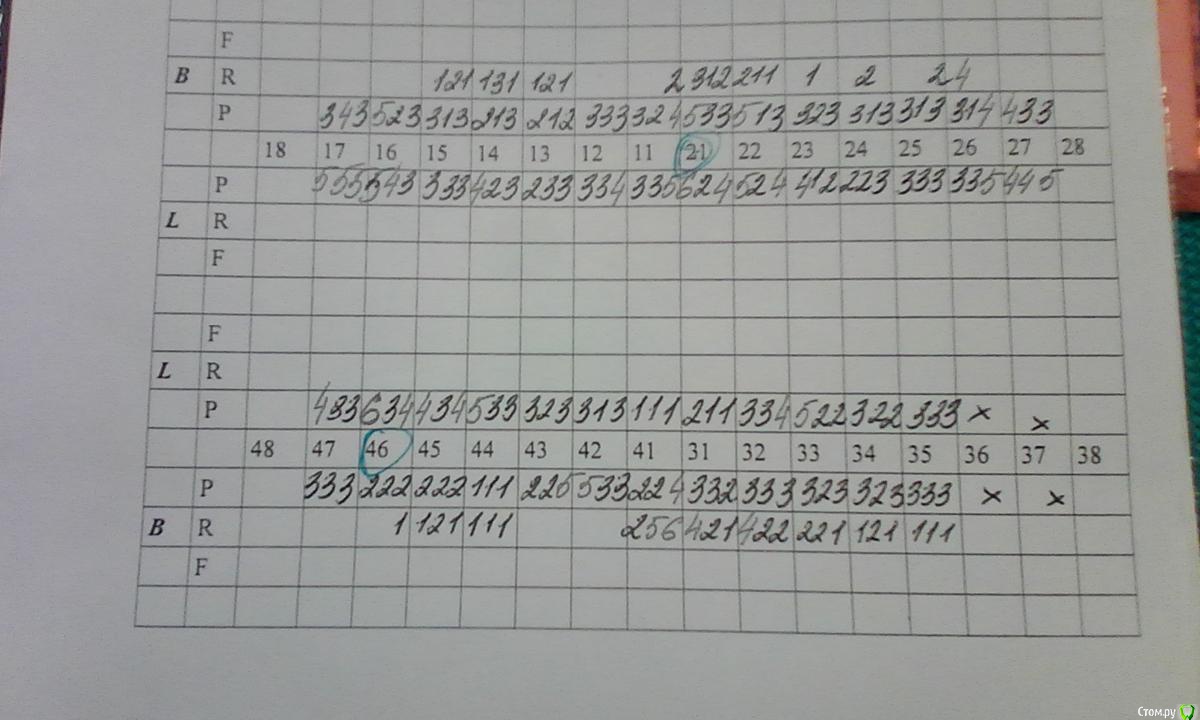 F
B R 121 131 121 2 312 211 1 2 24
P 343 523 313 213 212 333 324 533 513 323 313 313 314 433
18 17 16 15 14 13 12 11 21 22 23 24 25 26 27 28
P 555 543 333 423 233 334 335 624 524 412 223 333 335 445
L R
F
F
L R
P 433 634 434 533 323 313 111 211 334 522 322 333 × ×
48 47 46 45 44 43 42 41 31 32 33 34 35 36 37 38
P 333 222 222 111 225 533 224 332 333 323 323 333 × ×
B R 1 121 111 256 421 422 221 121 111
F
Стом.ру